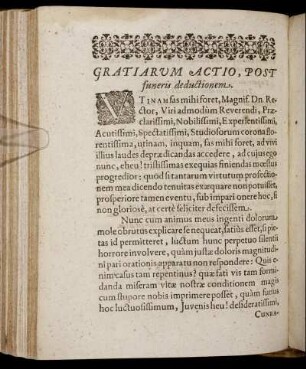 GRATIARUM ACTIO, POST
funeris deductionem.
VTINAM fas mihi foret, Magnif. Dn. Re-
ctor, Viri admodùm Reverendi, Præ-
clarissimi, Nobilissimi, Experientissimi,
Acutissimi, Spectatissimi, Studiosorum corona flo-
rentissima, utinam, inquam, fas mihi foret, ad vivi
illius laudes deprædicandas accedere, ad cujus ego
nunc, eheu! tristissimas exequias finiendas mœstus
progredior: quòd si tantarum virtutum prosectio-
nem mea dicendo tenuitas exæquare non potuisset,
prosperiore tamen eventu, sub impari onere hoc, si
non gloriosè, at certè feliciter defecissem.
Nunc cum animus meus ingenti doloru
mole obrutus explicare se nequeat, satius esset, si pie-
tas id permitteret, luctum hunc perpetuo silentii
horrore involvere, quàm justæ doloris magnitudi-
ni pari orationis apparatu non respondere: Quis e-
nim casus tam repentinus? quæ fati vis tam formi-
danda miseram vitæ nostræ conditionem magis
cum stupore nobis imprimere posset, quàm funus
hoc luctuosissimum, Juvenis heu! desideratissimi,
CUNRA-